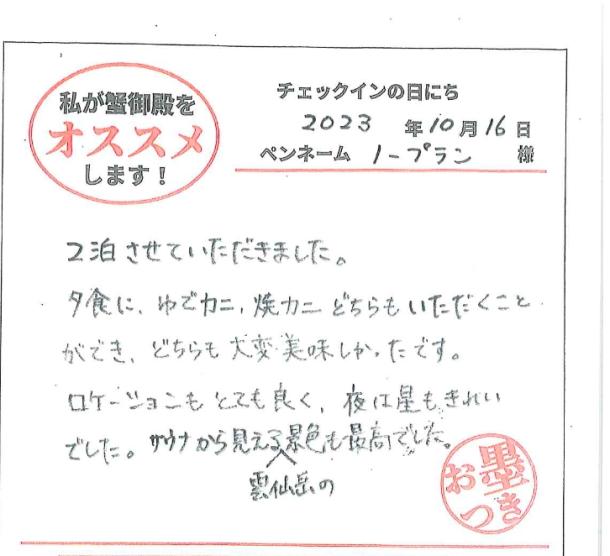 私が蟹御殿を
オススメ
します！
チェックインの日にち
2023 年10月16日
ペンネーム ノープラン 様
2泊させていただきました。
夕食に、ゆでカニ、焼カニどちらもいただくこと
ができ、どちらも大変美味しかったです。
ロケーションもとても良く、夜は星もきれい
でした。サウナから見える景色も最高でした。
雲仙岳の
墨
おつき